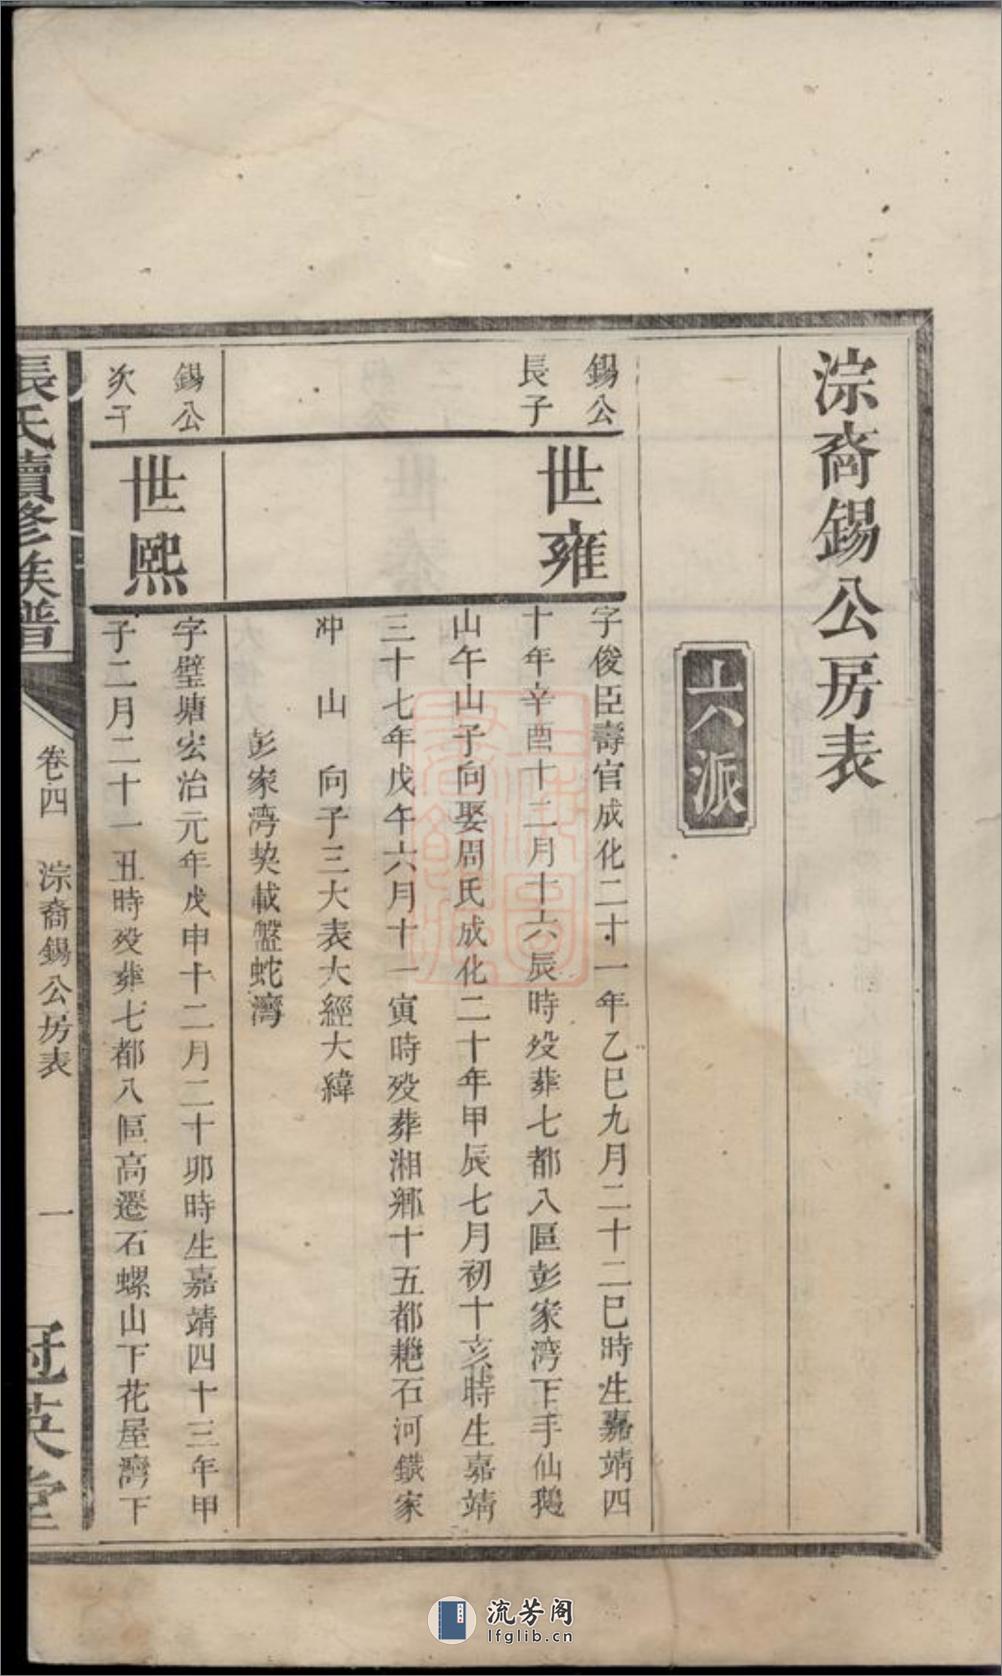 淙裔錫公房表
十六派
錫公
長子
世雍
字俊臣壽官成化二十一年乙巳九月二十二巳時生嘉靖四
十年辛酉十二月十六辰時歿葬七都八區彭家湾下手仙鵝
山午山子向娶周氏成化二十年甲辰七月初十亥時生嘉靖
三十七年戊午六月十一寅時歿葬湘鄉十五都耙石河鐵家
冲山向子三大表大經大緯
彭家湾契載盤蛇灣
錫公
次子
世熙
字璧塘宏治元年戊申十二月二十卯時生嘉靖四十三年甲
子二月二十一丑時歿葬七都八區高遷石螺山下花屋灣下
張氏續修族譜
卷四
淙裔錫公房表
一
冠英堂
流芳阁
lfglib.cn